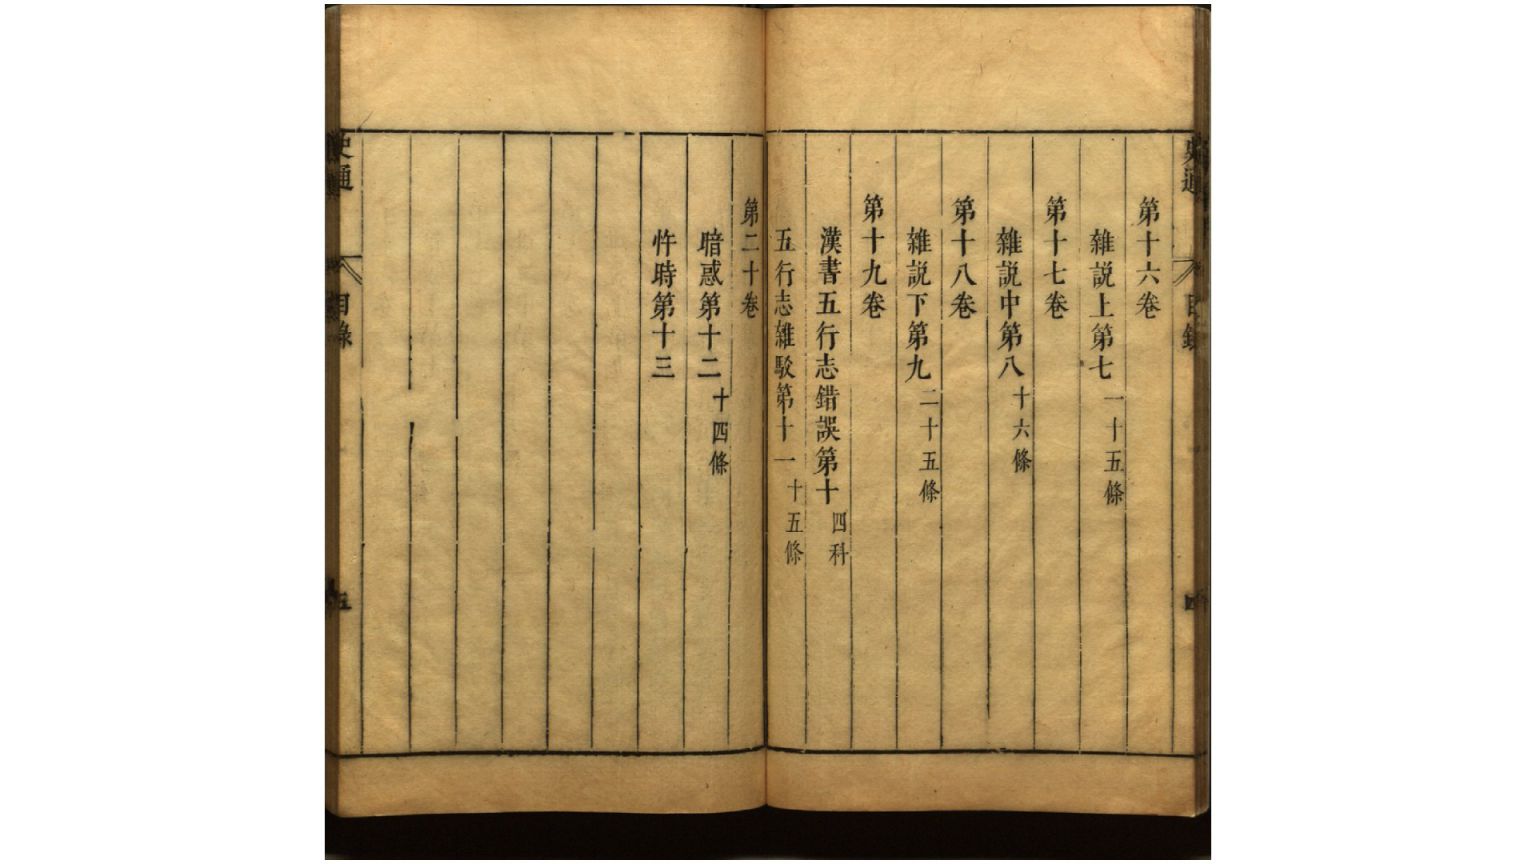 史通
目錄
第十六卷
雜説上第七 一十五條
第十七卷
雜説中第八 十六條
第十八卷
雜説下第九 二十五條
第十九卷
漢書五行志錯誤第十 四科
五行志雜駁第十一 十五條
第二十卷
暗惑第十二 十四條
忤時第十三
史通
目錄
五